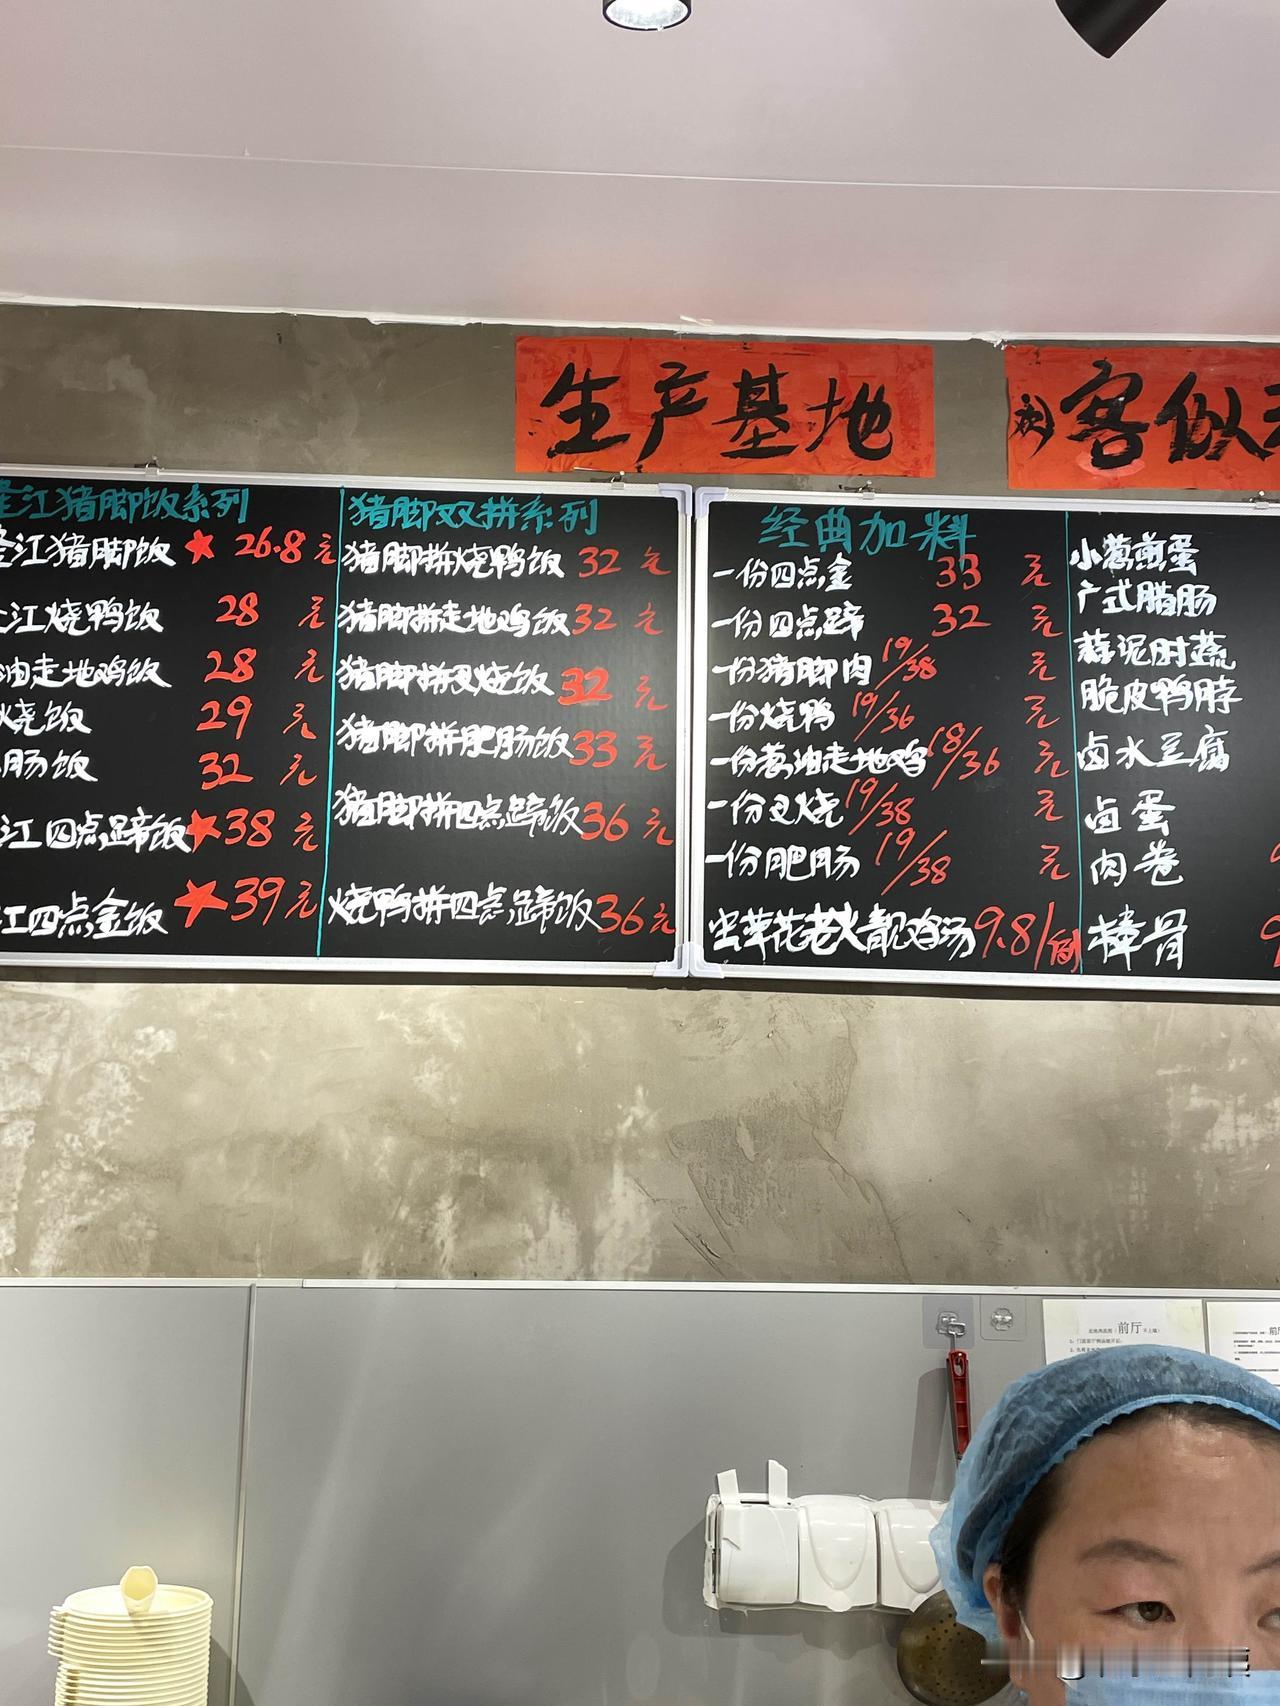 生产基地
客似
江猪脚饭系列
江猪脚饭 ★ 26.8 元
江烧鸭饭 28 元
油走地鸡饭 28 元
烧饭 29 元
肠饭 32 元
江四点蹄饭 ★ 38 元
江四点金饭 ★ 39 元
猪脚双拼系列
猪脚拼烧鸭饭 32 元
猪脚拼走地鸡饭 32 元
猪脚拼叉烧饭 32 元
猪脚拼肥肠饭 33 元
猪脚拼四点蹄饭 36 元
烧鸭拼四点蹄饭 36 元
经典加料
一份四点金 33 元
一份四点蹄 32 元
一份猪脚肉 19/38 元
一份烧鸭 19/36 元
一份葱油走地鸡 18/36 元
一份叉烧 19/38 元
一份肥肠 19/38 元
虫草花老火靓鸡汤 9.8/
小葱煎蛋
广式腊肠
蒜泥时蔬
脆皮鸭脖
卤水豆腐
卤蛋
肉卷
棒骨
前厅